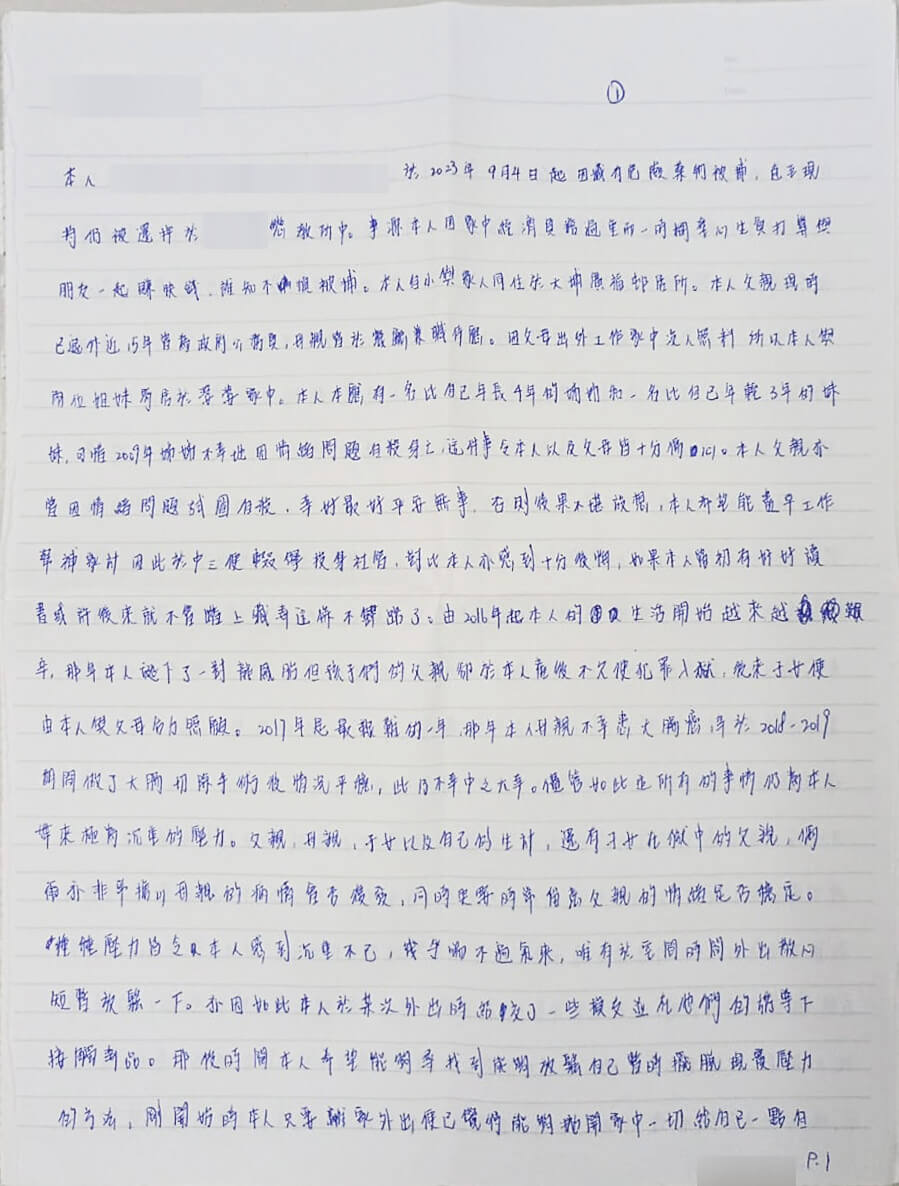 ①
本人 於2023年9月4日起因藏有危險藥物被捕，直至現
時仍被還押於 懲教所中。事源本人因家中經濟負擔過重而一時捆 生貪打算與
朋友一起賺快錢，誰知不慎被捕。本人自小與家人同住於大埔廣福邨居所。本人父親現時
已退休近15年曾為政府公務員，母親曾於 兼職 。因父母出外工作家中沒人照料 所以本人與
兩位姐妹寄居於婆婆家中。本人本應有一名比自己年長4年的姐姐和一名比自己年輕3年的妹
妹，可惜2009年姐姐不幸地因情緒問題自殺身亡，這件事令本人以及父母皆十分傷心。本人父親亦
曾因情緒問題試圖自殺，幸好最好平安無事，否則後果不堪設想，本人希望能盡早工作
幫補家計因此於中三便輟學投身社會，對比本人亦感到十分後悔，如果本人當初有好好讀
書或許後來就不會踏上藏毒這條不歸路了。由2016年起本人的 生活開始越來越 艱
辛，那年本人誕下了一對龍鳳胎但孩子們的父親卻於本人產後不久便犯罪入獄，後來子女便
由本人與父母合力照顧。2017年是最艱難的一年，那年本人母親不幸患大腸癌，得於2018-2019
期間做了大腸切除手術後情況平穩，此乃不幸中之大幸。儘管如此這所有的事情仍為本人
帶來極為沉重的壓力。父親，母親，子女以及自己的生計，還有子女在獄中的父親，偶
而亦非常擔心母親的病情會否復發，同時更要時常留意父親的情緒是否穩定。
種種壓力皆令 本人感到沉重不已，幾乎喘不過氣來，唯有於空閒時間外出散心
短暫放鬆一下。亦因如此本人於某次外出時結交了一些損友並在他們的誘導下
接觸毒品。那段時間本人希望能夠尋找到能夠放鬆自己暫時擺脫現實壓力
的方法，剛開始時本人只要離家外出便已覺得能夠拋開家中一切給自己一點自
P.1